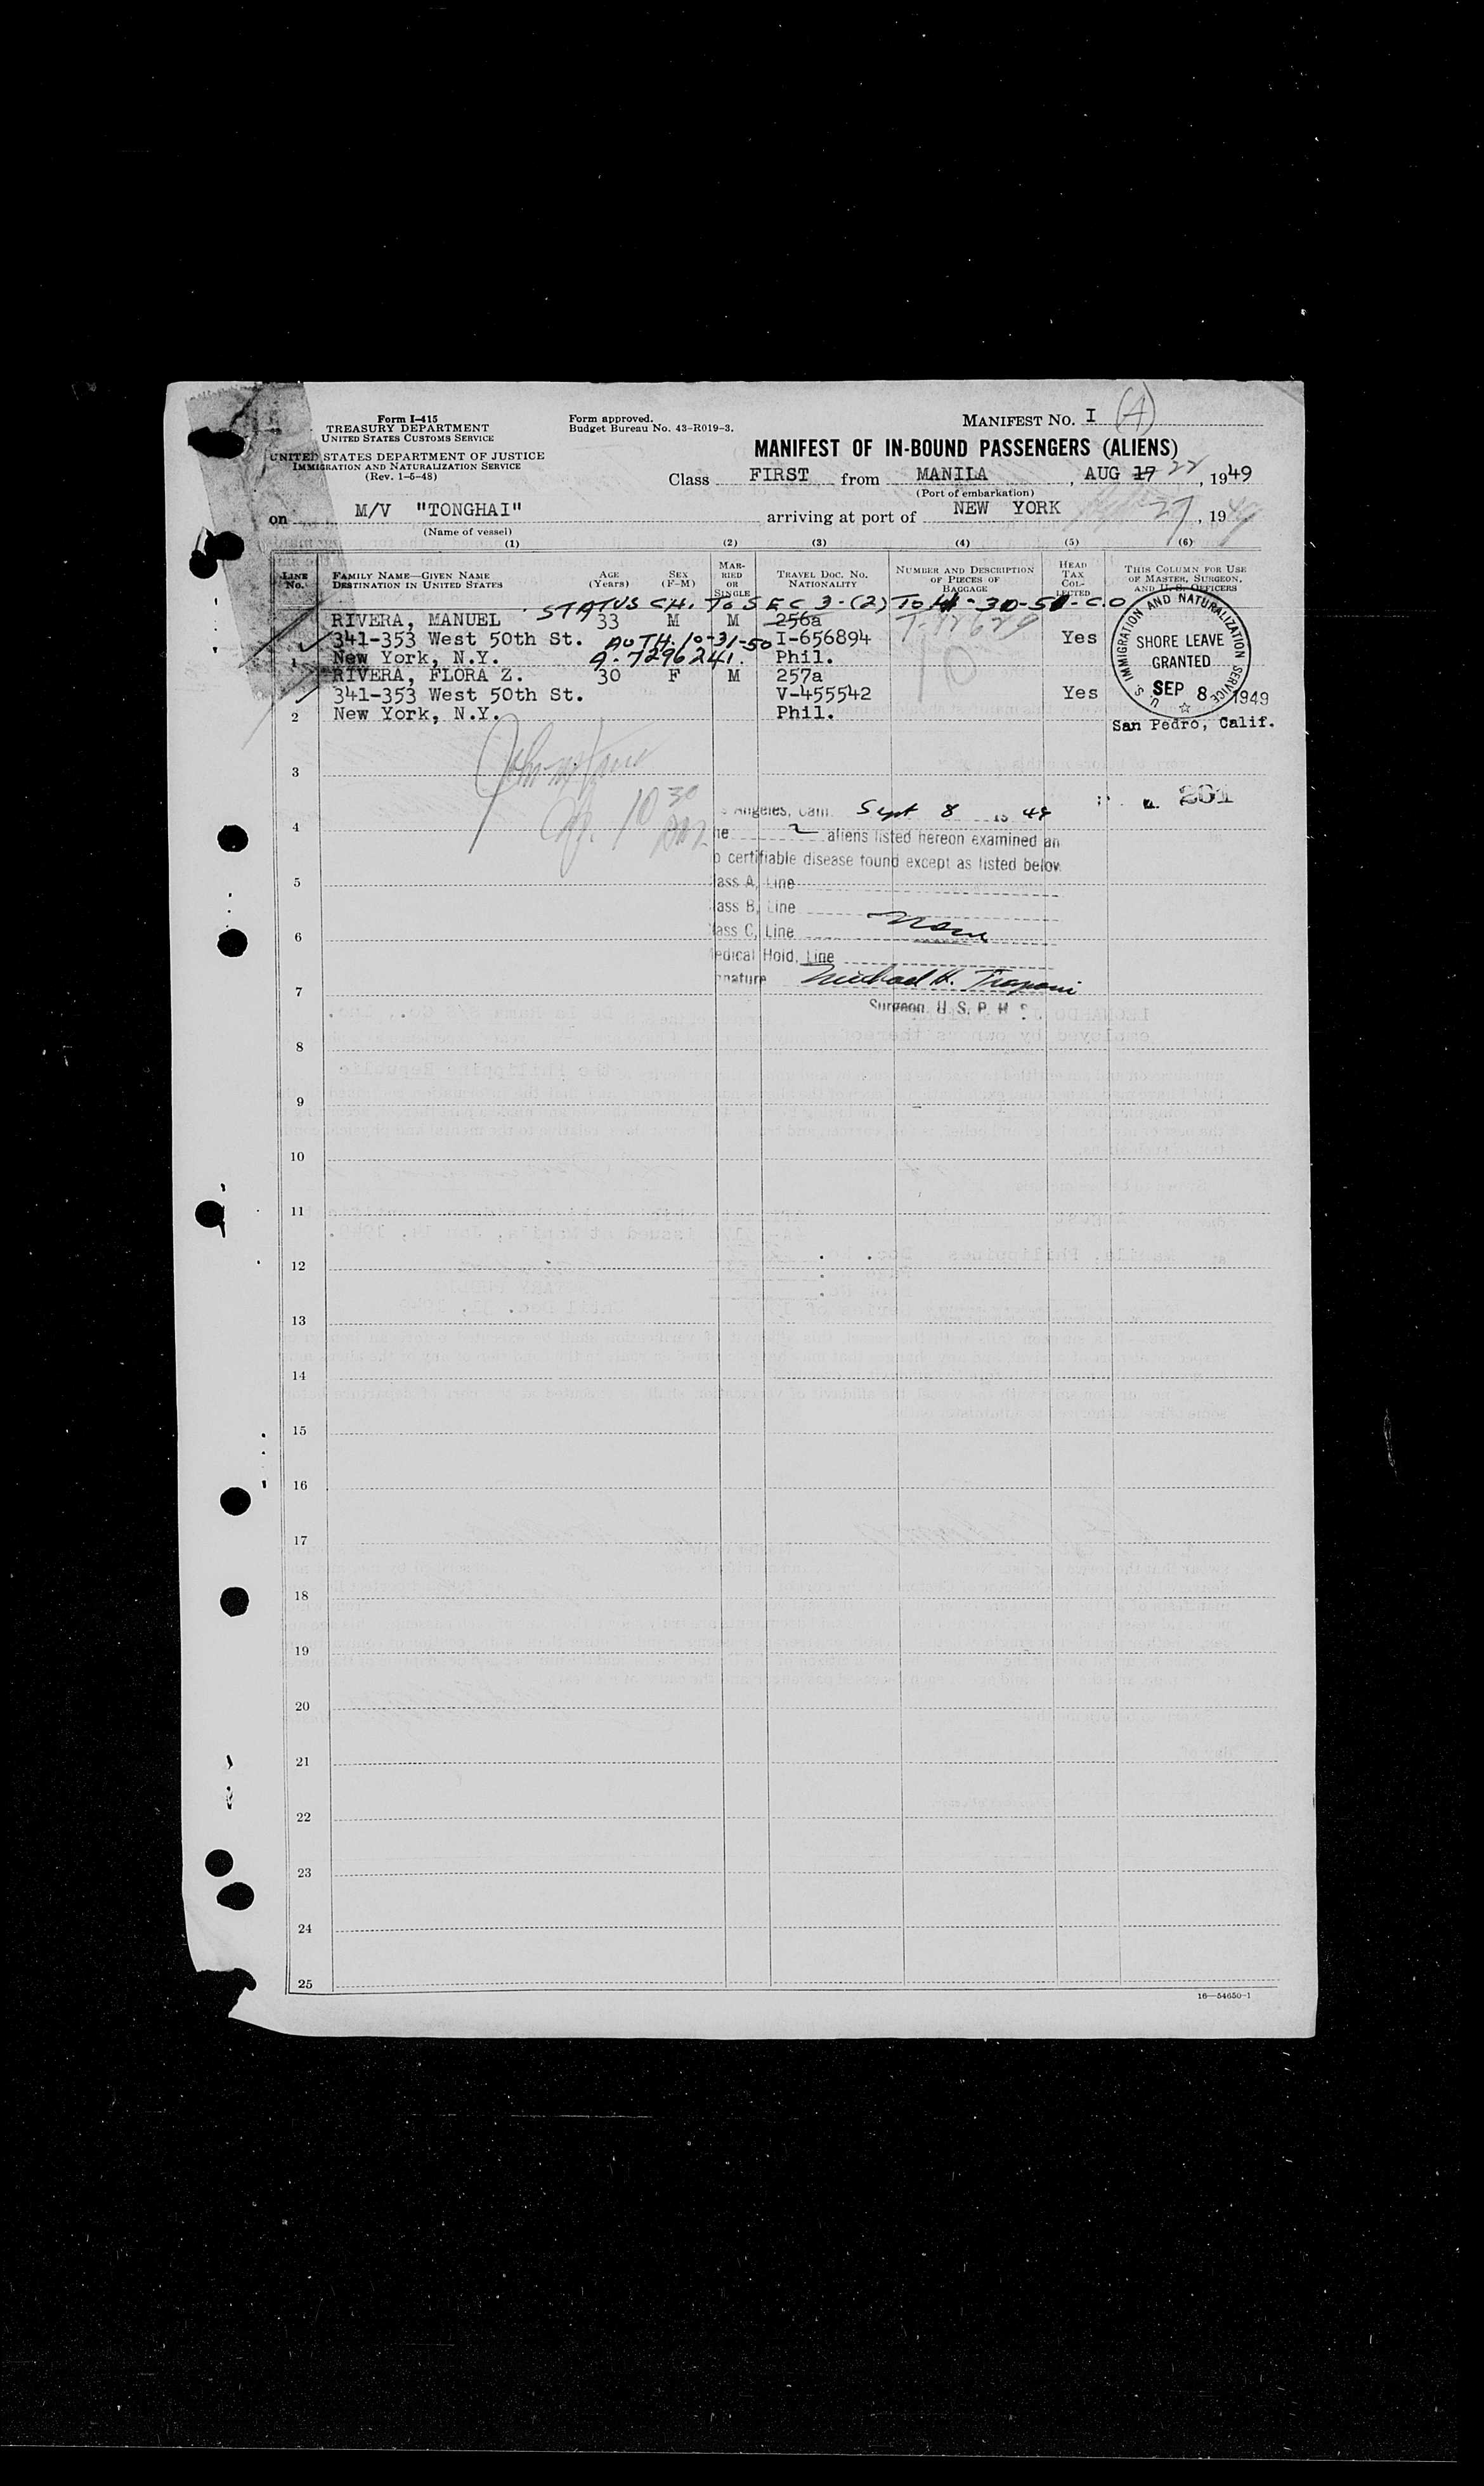 Form I-415
TREASURY DEPARTMENT
UNITED STATES CUSTOMS SERVICE
UNITED STATES DEPARTMENT OF JUSTICE
IMMIGRATION AND NATURALIZATION SERVICE
(Rev. 1-5-48)
Form approved.
Budget Bureau No. 43-R019-3.
MANIFEST NO. I (A)
MANIFEST OF IN-BOUND PASSENGERS (ALIENS)
Class FIRST from MANILA, AUG 17 22, 1949
(Port of embarkation)
on M/V "TONGHAI" arriving at port of NEW YORK 27, 1949
(Name of vessel)
(1) (2) (3) (4) (5) (6)
LINE No.
FAMILY NAME—GIVEN NAME
DESTINATION IN UNITED STATES
AGE (Years)
SEX (F-M)
MARRIED OR SINGLE
TRAVEL DOC. NO. NATIONALITY
NUMBER AND DESCRIPTION OF PIECES OF BAGGAGE
HEAD TAX COLLECTED
THIS COLUMN FOR USE OF MASTER, SURGEON, AND U. S. OFFICERS
STATUS CH. TO SEC 3-(2) TO
RIVERA, MANUEL 33 M M 256a
341-353 West 50th St. AUTH. 10-31-50 I-656894 Yes
1 New York, N.Y. A-7296241. Phil.
RIVERA, FLORA Z. 30 F M 257a
341-353 West 50th St. V-455542 Yes
2 New York, N.Y. Phil.
U. S. IMMIGRATION AND NATURALIZATION SERVICE
SHORE LEAVE
GRANTED
SEP 8 1949
San Pedro, Calif.
3
201
s Angeles, Calif. Sept 8 19 49
4
he 2 aliens listed hereon examined an
o certifiable disease found except as listed below
5
lass A, Line
lass B, Line
6
lass C, Line None
edical Hold, Line
7
nature Michael H. Trapani
Surgeon, U. S. P. H. S.
8
9
10
11
12
13
14
15
16
17
18
19
20
21
22
23
24
25
16—54650-1